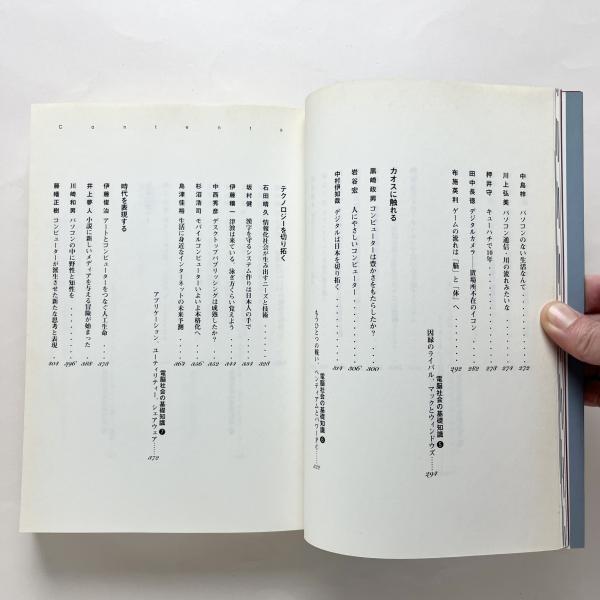 中島梓 パソコンのない生活なんて‥‥‥272
川上弘美 パソコン通信 川の流れみたいな‥‥‥274
押井守 キューハチで10年‥‥‥273
田中長徳 デジタルカメラ 置場所不在のイコン‥‥‥282
布施英利 ゲームの流れは「脳」と「体」へ‥‥‥292
電脳社会の基礎知識❺
因縁のライバル、マックとウィンドウズ‥‥‥294
カオスに触れる
黒崎政男 コンピューターは豊かさをもたらしたか?‥‥‥300
岩谷宏 人にやさしいコンピューター‥‥‥306
中村伊知哉 デジタルは日本を切り拓く‥‥‥314
電脳社会の基礎知識❻
もうひとつの戦い、ペンティアムとパワーPC‥‥‥322
Contents
テクノロジーを切り拓く
石田晴久 情報化社会が生み出すニーズと技術‥‥‥328
坂村健 漢字を守るシステム作りは日本人の手で‥‥‥334
伊藤穣一 津波は来ている、泳ぎ方くらい覚えよう‥‥‥344
中西秀彦 デスクトップパブリッシングは成熟したか?‥‥‥352
杉沼浩司 モバイルコンピューターいよいよ本格化へ‥‥‥356
島津佳裕 生活に身近なインターネットの未来予測‥‥‥362
電脳社会の基礎知識❼
アプリケーション、ユーティリティー、シェアウェア‥‥‥372
時代を表現する
伊藤俊治 アートとコンピューターをつなぐ人工生命‥‥‥378
井上夢人 小説に新しいメディアを与える冒険が始まった‥‥‥388
川崎和男 パソコンの中に野性と知性を‥‥‥396
藤幡正樹 コンピューターが派生させた新たな思考と表現‥‥‥404